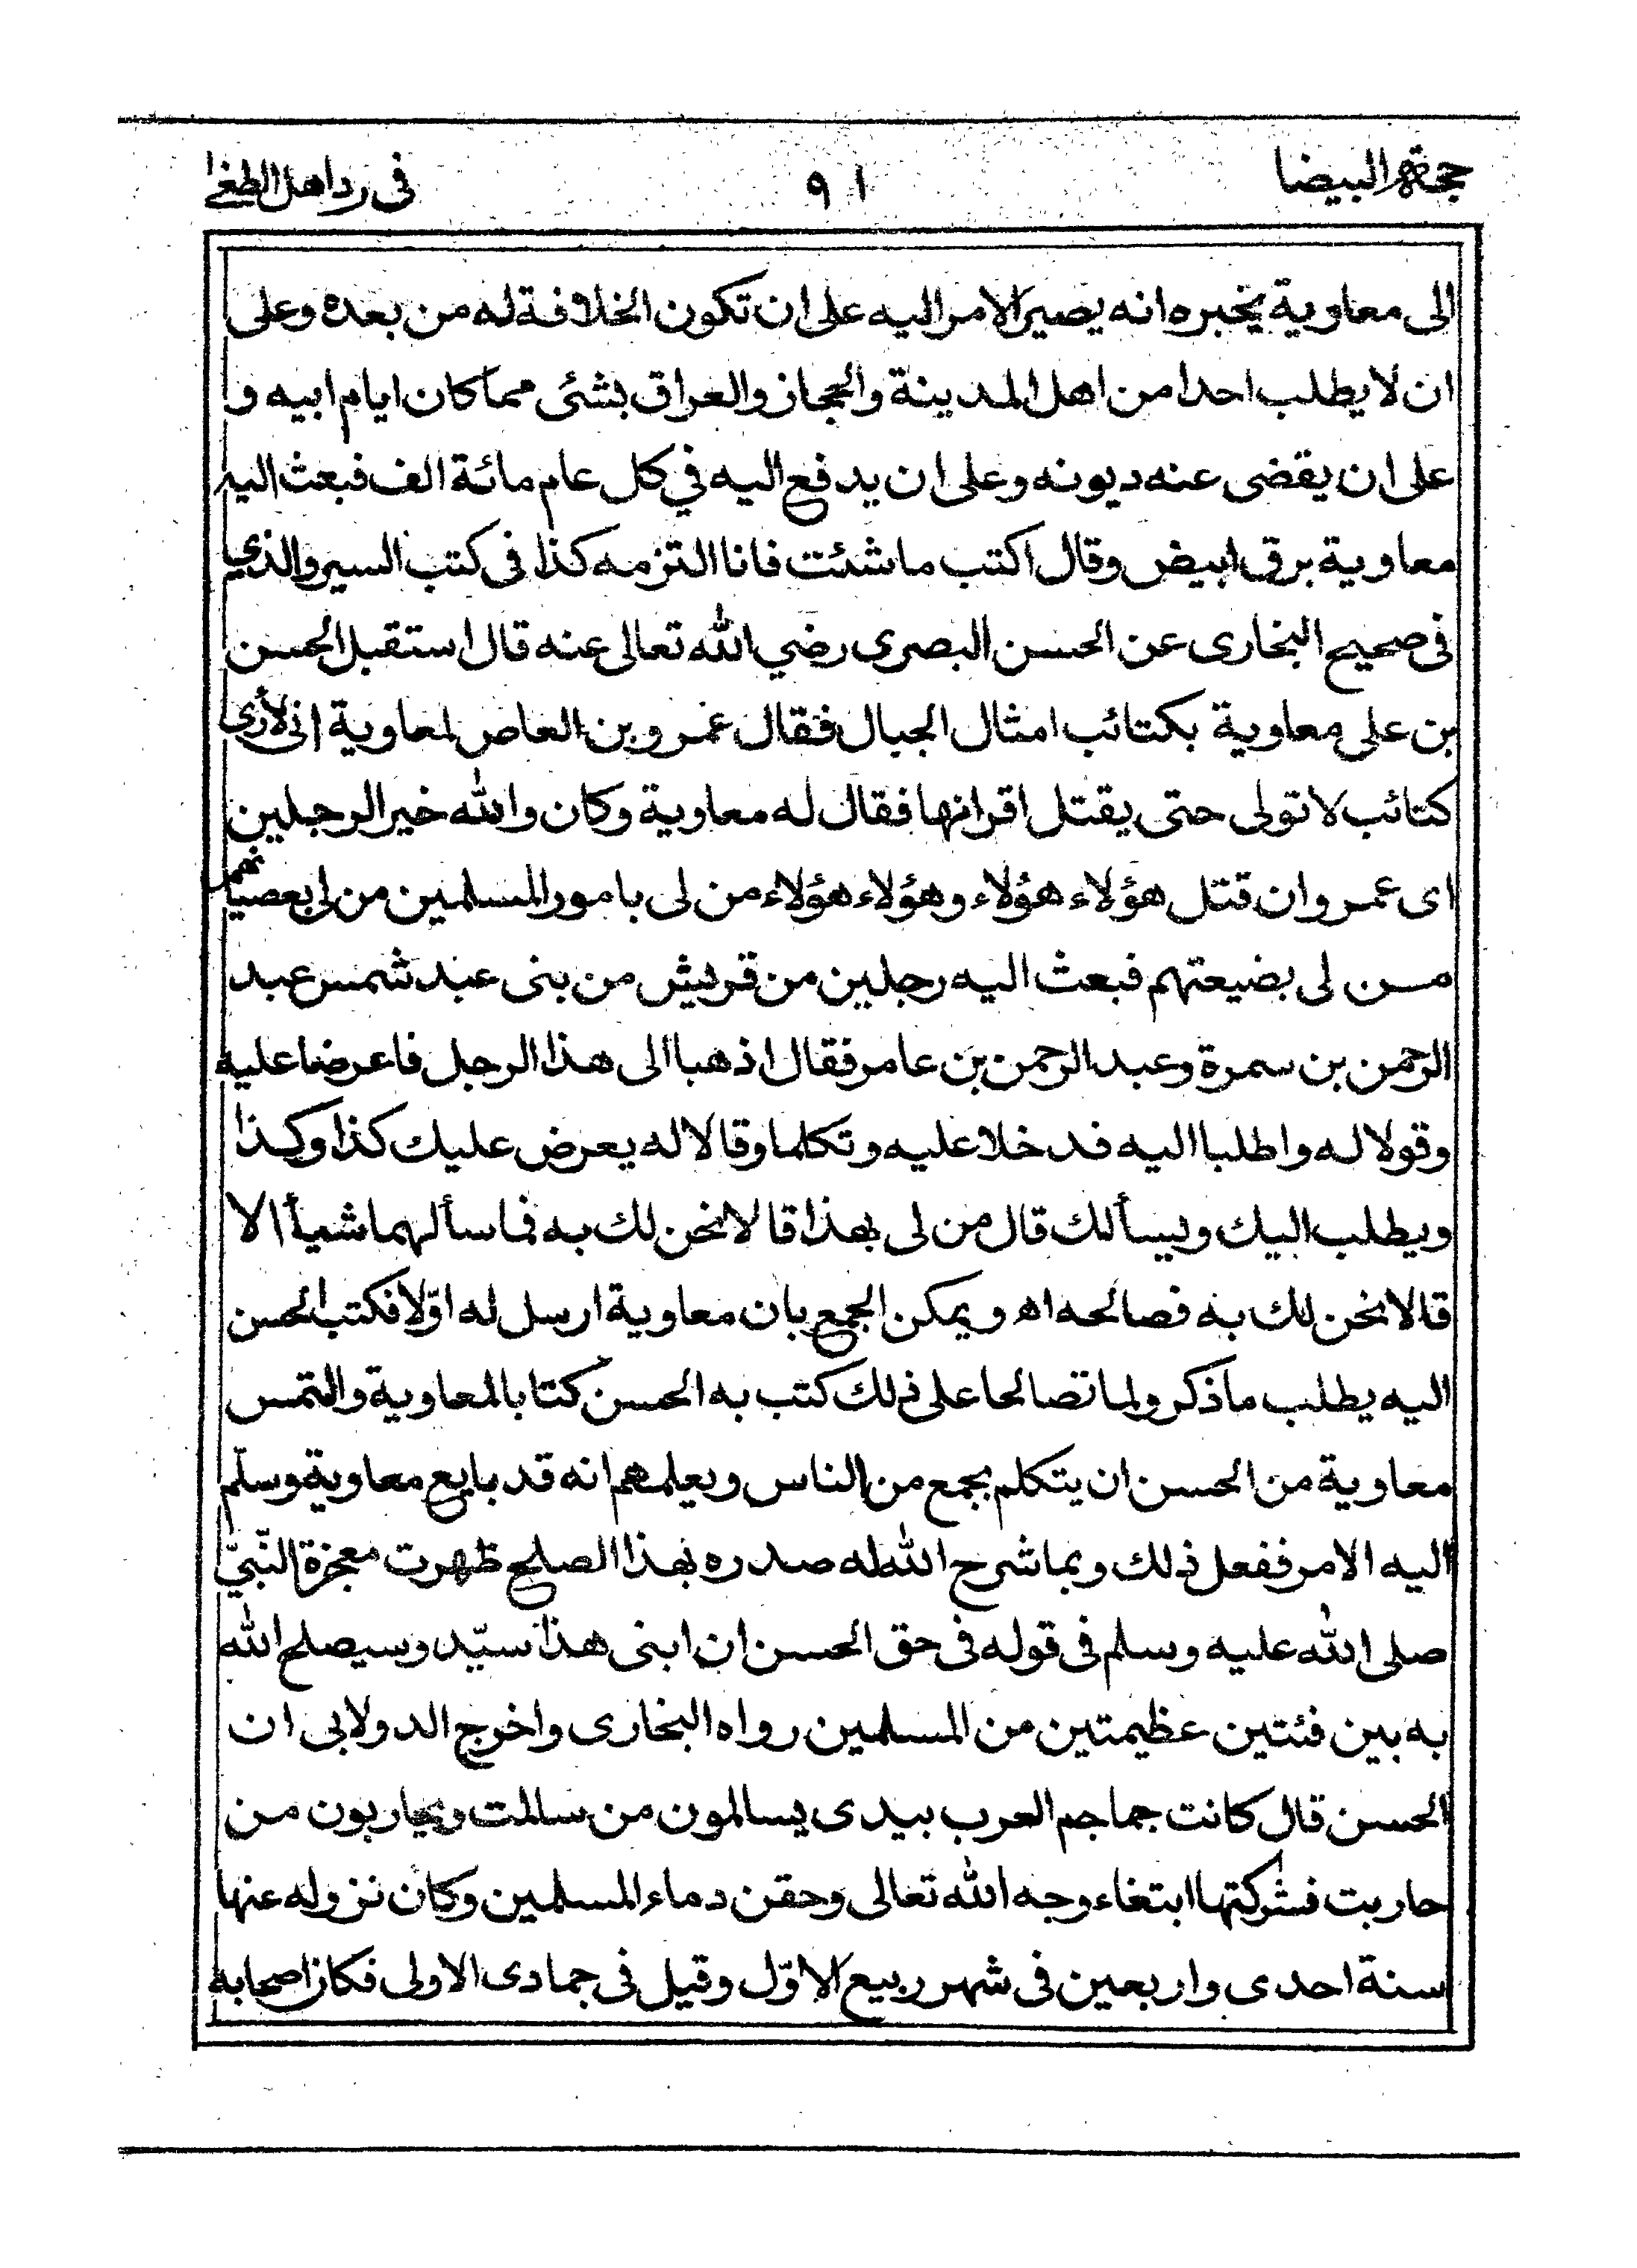 حجة البيضا ٩١ فى رد اهل الطغى
الى معاوية يخبره انه يصير الامر اليه على ان تكون الخلافة له من بعده وعلى
ان لا يطلب احدا من اهل المدينة والحجاز والعراق بشئى مما كان ايام ابيه و
على ان يقضى عنه ديونه وعلى ان يدفع اليه في كل عام مائة الف فبعث اليه
معاوية برق ابيض وقال اكتب ما شئت فانا التزمه كذا فى كتب السير والذي
فى صحيح البخارى عن الحسن البصرى رضي الله تعالى عنه قال استقبل الحسن
بن على معاوية بكتائب امثال الجبال فقال عمرو بن العاص لمعاوية انى لأرى
كتائب لا تولى حتى يقتل اقرانها فقال له معاوية وكان والله خير الرجلين
اى عمرو ان قتل هؤلاء هؤلاء وهؤلاء هؤلاء من لى بامور المسلمين من لى
مـن لى بضيعتهم فبعث اليه رجلين من قريش من بنى عبد شمس عبد
الرحمن بن سمرة وعبد الرحمن بن عامر فقال اذهبا الى هذا الرجل فاعرضا عليه
وقولا له واطلبا اليه فدخلا عليه وتكلما وقالا له يعرض عليك كذا وكذا
ويطلب اليك ويسألك قال من لى بهذا قالا نحن لك به فما سألهما شيأ الا
قالا نحن لك به فصالحه اه ويمكن الجمع بان معاوية ارسل له اوّلا فكتب الحسن
اليه يطلب ما ذكر ولما تصالحا على ذلك كتب به الحسن كتابا لمعاوية والتمس
معاوية من الحسن ان يتكلم بجمع من الناس ويعلمهم انه قد بايع معاوية وسلّم
اليه الامر ففعل ذلك وبما شرح الله له صدره بهذا الصلح ظهرت معجزة النّبيّ
صلى الله عليه وسلم فى قوله فى حق الحسن ان ابنى هذا سيّد وسيصلح الله
به بين فئتين عظيمتين من المسلمين رواه البخارى واخرج الدولابى ان
الحسن قال كانت جماجم العرب بيدى يسالمون من سالمت ويحاربون من
حاربت فتركتها ابتغاء وجه الله تعالى وحقن دماء المسلمين وكان نزوله عنها
سنة احدى واربعين فى شهر ربيع الاوّل وقيل فى جمادى الاولى فكان اصحابه